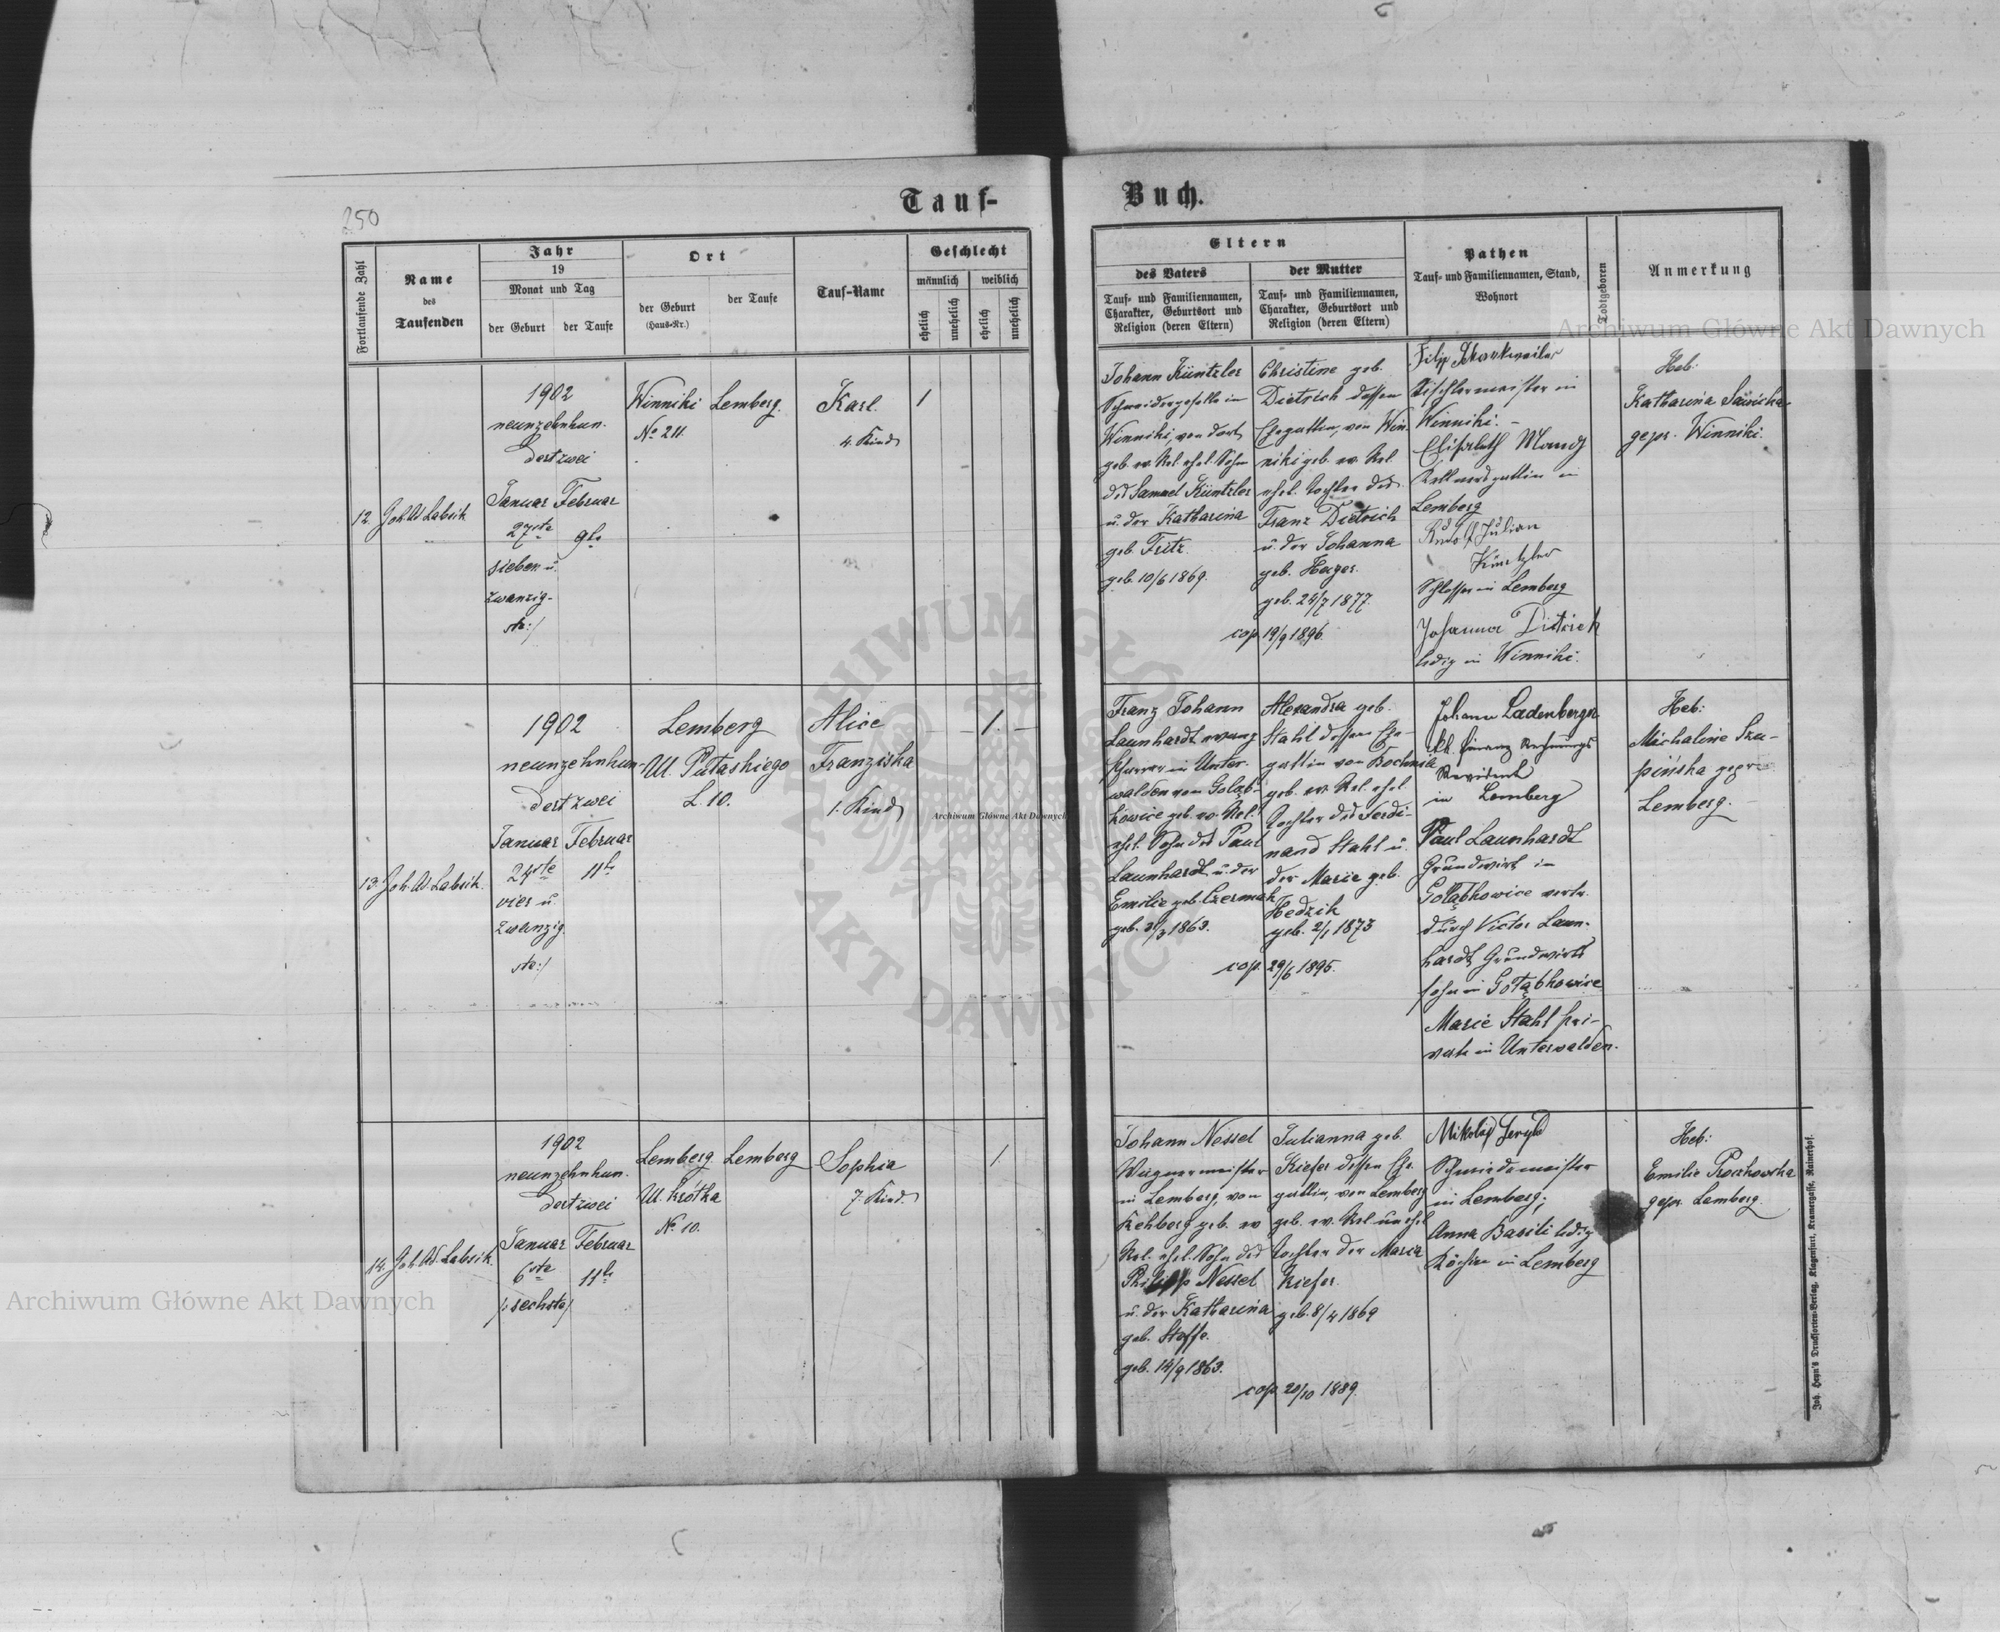 250
Tauf-
Buch.
Fortlaufende Zahl
Name
des
Taufenden
Jahr
19
Monat und Tag
der Geburt
der Taufe
Ort
der Geburt
(Haus-Nr.)
der Taufe
Tauf-Name
Geschlecht
männlich
weiblich
ehelich
unehelich
ehelich
unehelich
Eltern
des Vaters
Tauf- und Familiennamen,
Charakter, Geburtsort und
Religion (deren Eltern)
der Mutter
Tauf- und Familiennamen,
Charakter, Geburtsort und
Religion (deren Eltern)
Pathen
Tauf- und Familiennamen, Stand,
Wohnort
Todtgeboren
Anmerkung
12.
Joh. Ad. Labsik
1902
neunzehnhun-
dertzwei
Januar Februar
27ste 9te
sieben u.
zwanzig-
ste:/
Winniki
No 211.
Lemberg.
Karl.
4. Kind
1
Johann Küntzler
Schneidergeselle in
Winniki, von dort
geb. ev. Rel. ehel. Sohn
des Samuel Küntzler
u. der Katharina
geb. Fritz.
geb. 10/6 1869.
Christine geb.
Dietrich dessen
Ehegattin, von Win-
niki geb. ev. Rel.
ehel. Tochter des
Franz Dietrich
u. der Johanna
geb. Heger.
geb. 24/7 1877.
cop 19/9 1896
Filip
Tischlermeister in
Winniki. -
Elisabeth Mang
Kellnersgattin in
Lemberg
Rudolf Julian
Küntzler
Schlosser in Lemberg
Johanna Dietrich
ledig in Winniki.
Heb:
Katharina
gepr. Winniki.
13.
Joh. Ad. Labsik.
1902
neunzehnhun-
dertzwei
Januar Februar
24ste 11te
vier u.
zwanzig-
ste:/
Lemberg
Ul. Pułaskiego
L. 10.
Alice
Franziska
1. Kind
1.
Franz Johann
Launhardt evang
Pfarrer in Unter-
walden von Gołąb-
kowice geb. ev. Rel.
ehel. Sohn des Paul
Launhardt u. der
Emilie geb. Czermak
geb. 3/3 1863.
Alexandra geb.
Stahl dessen Ehe-
gattin von Bochnia
geb. ev. Rel. ehel
Tochter des Ferdi-
nand Stahl u.
der Marie geb.
Hedzik
geb. 2/1 1873
cop. 29/6 1895.
Johann Ladenberger
kk. Finanz Rechnungs
Revident
in Lemberg
Paul Launhardt
Grundwirt in
Gołąbkowice vertr.
durch Victor Laun-
hardt Grundwirts
sohn in Gołąbkowice
Marie Stahl pri-
vate in Unterwalden.
Heb:
Michaline Szu-
pińska gepr
Lemberg.
14.
Joh. Ad. Labsik.
1902
neunzehnhun-
dertzwei
Januar Februar
6ste 11te
/:sechste/
Lemberg
Ul. krótka
No. 10.
Lemberg
Sophia
7. Kind.
1
Johann Nessel
Wagnermeister
in Lemberg, von
Rehberg geb. ev
Rel. ehel. Sohn des
Philipp Nessel
u. der Katharina
geb. Steffe.
geb. 14/9 1863.
Julianna geb.
Kiefer dessen Ehe-
gattin, von Lemberg
geb. ev. Rel. unehel
Tochter der Maria
Kiefer.
geb. 8/4 1869
cop 20/10 1889.
Mikołaj
Schmiedemeister
in Lemberg;
Anna Basili ledig
Köchin in Lemberg
Heb:
Emilie Proczkowska
gepr. Lemberg.
Joh. Heyn's Drucksorten-Verlag, Klagenfurt, Kramergasse, Rainerhof.
Archiwum Główne Akt Dawnych
Archiwum Główne Akt Dawnych
Archiwum Główne Akt Dawnych
ARCHIWUM GŁÓWNE
AKT DAWNYCH